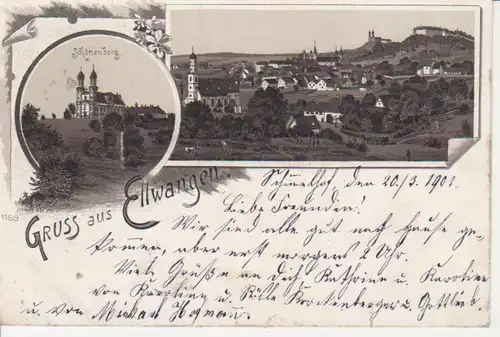 Schönenberg.
1169
Gruss aus Ellwangen.
den 20./3. 1901.
Liebe Freunden!
Wir sind alle gut nach Hause ge-
kommen, aber erst morgens 2 Uhr.
Viele Grüße an dich Kathrine u. Karoline
von Karoline u. Gottlieb.
u. von